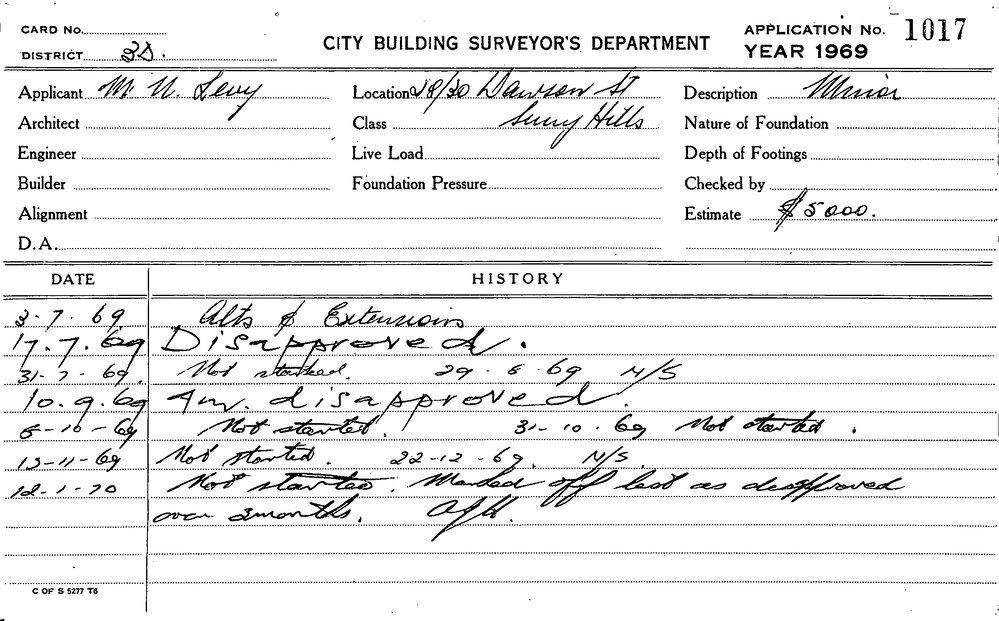 CARD No.
DISTRICT 3D.
CITY BUILDING SURVEYOR'S DEPARTMENT
APPLICATION No. 1017
YEAR 1969
Applicant Mr. N. Levy
Location 28/30 Dawson St
Surry Hills
Description Minor
Architect
Class
Nature of Foundation
Engineer
Live Load
Depth of Footings
Builder
Foundation Pressure
Checked by
Alignment
Estimate $5000.
D.A.
DATE HISTORY
3-7.69 Alts & Extensions
17.7.69 Disapproved.
31-7-69. Not started. 29-8-69 N/S
10.9.69 Am. disapproved.
8-10-69 Not started. 31-10.69 Not started.
13-11-69 Not started. 22-12-69. N/S.
12-1-70 Not started. Marked off list as disapproved
over 3 months.
C OF S 5277 T6